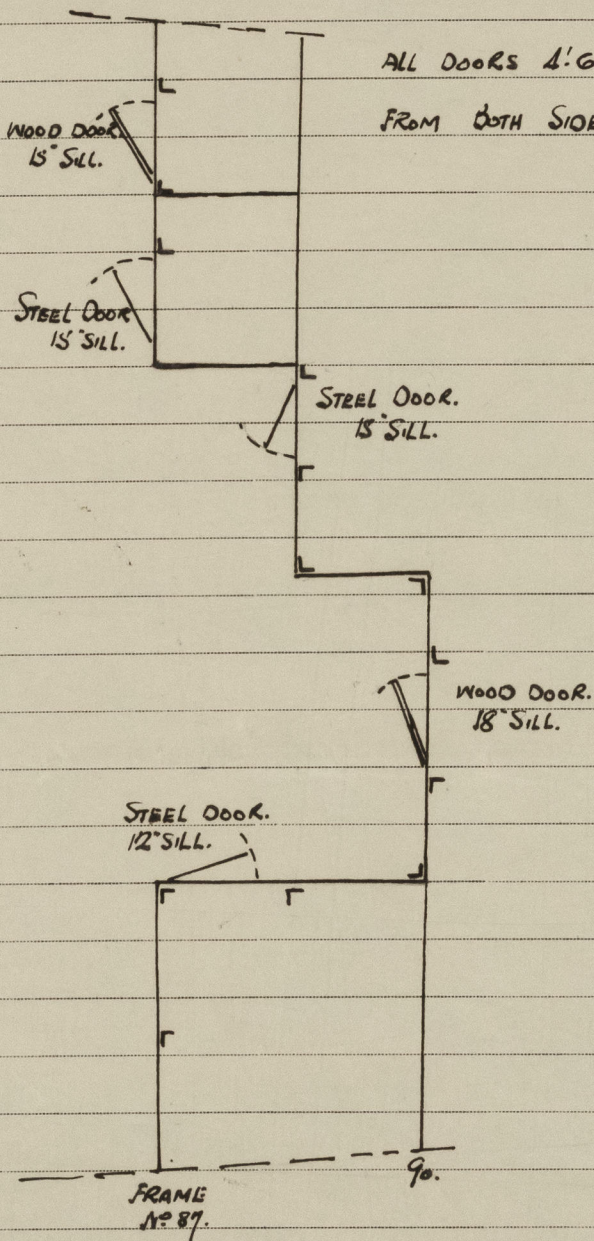 ALL DOORS 4'.6
FROM BOTH
WOOD DOOR
15" SILL.
STEEL DOOR
15" SILL.
STEEL DOOR.
15" SILL.
WOOD DOOR.
18" SILL.
STEEL DOOR.
12" SILL.
90.
FRAME
Nº 87.